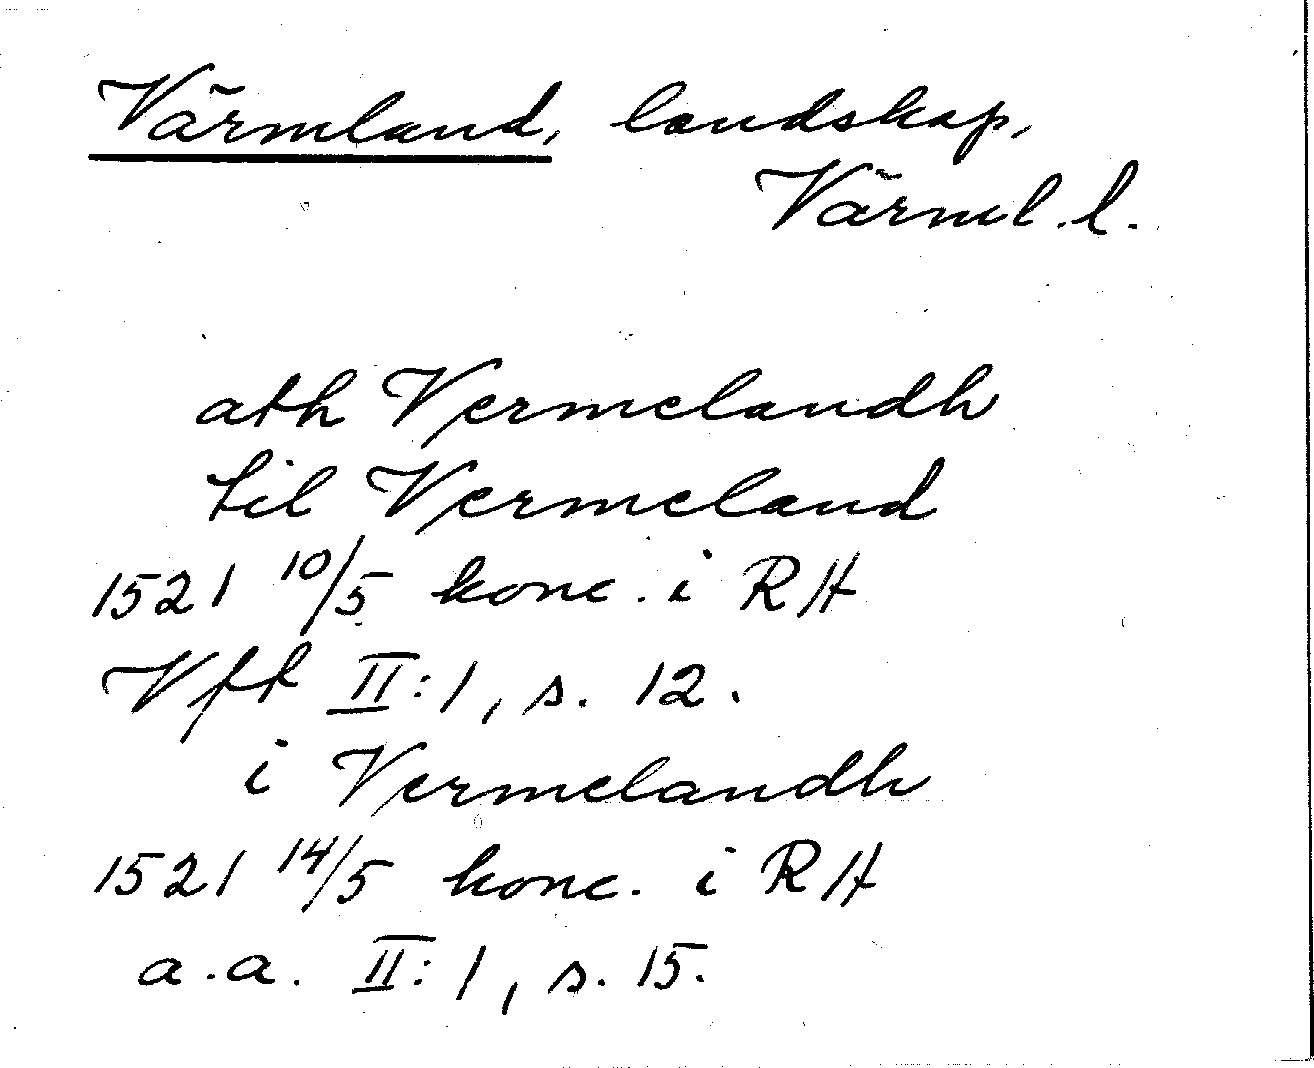 Värmland, landskap,
Värml. l.
ath Vermelandh
til Vermeland
1521 10/5 konc. i RH
Vfk II:1, s. 12.
i Vermelandh
1521 14/5 konc. i RH
a.a. II:1, s. 15.